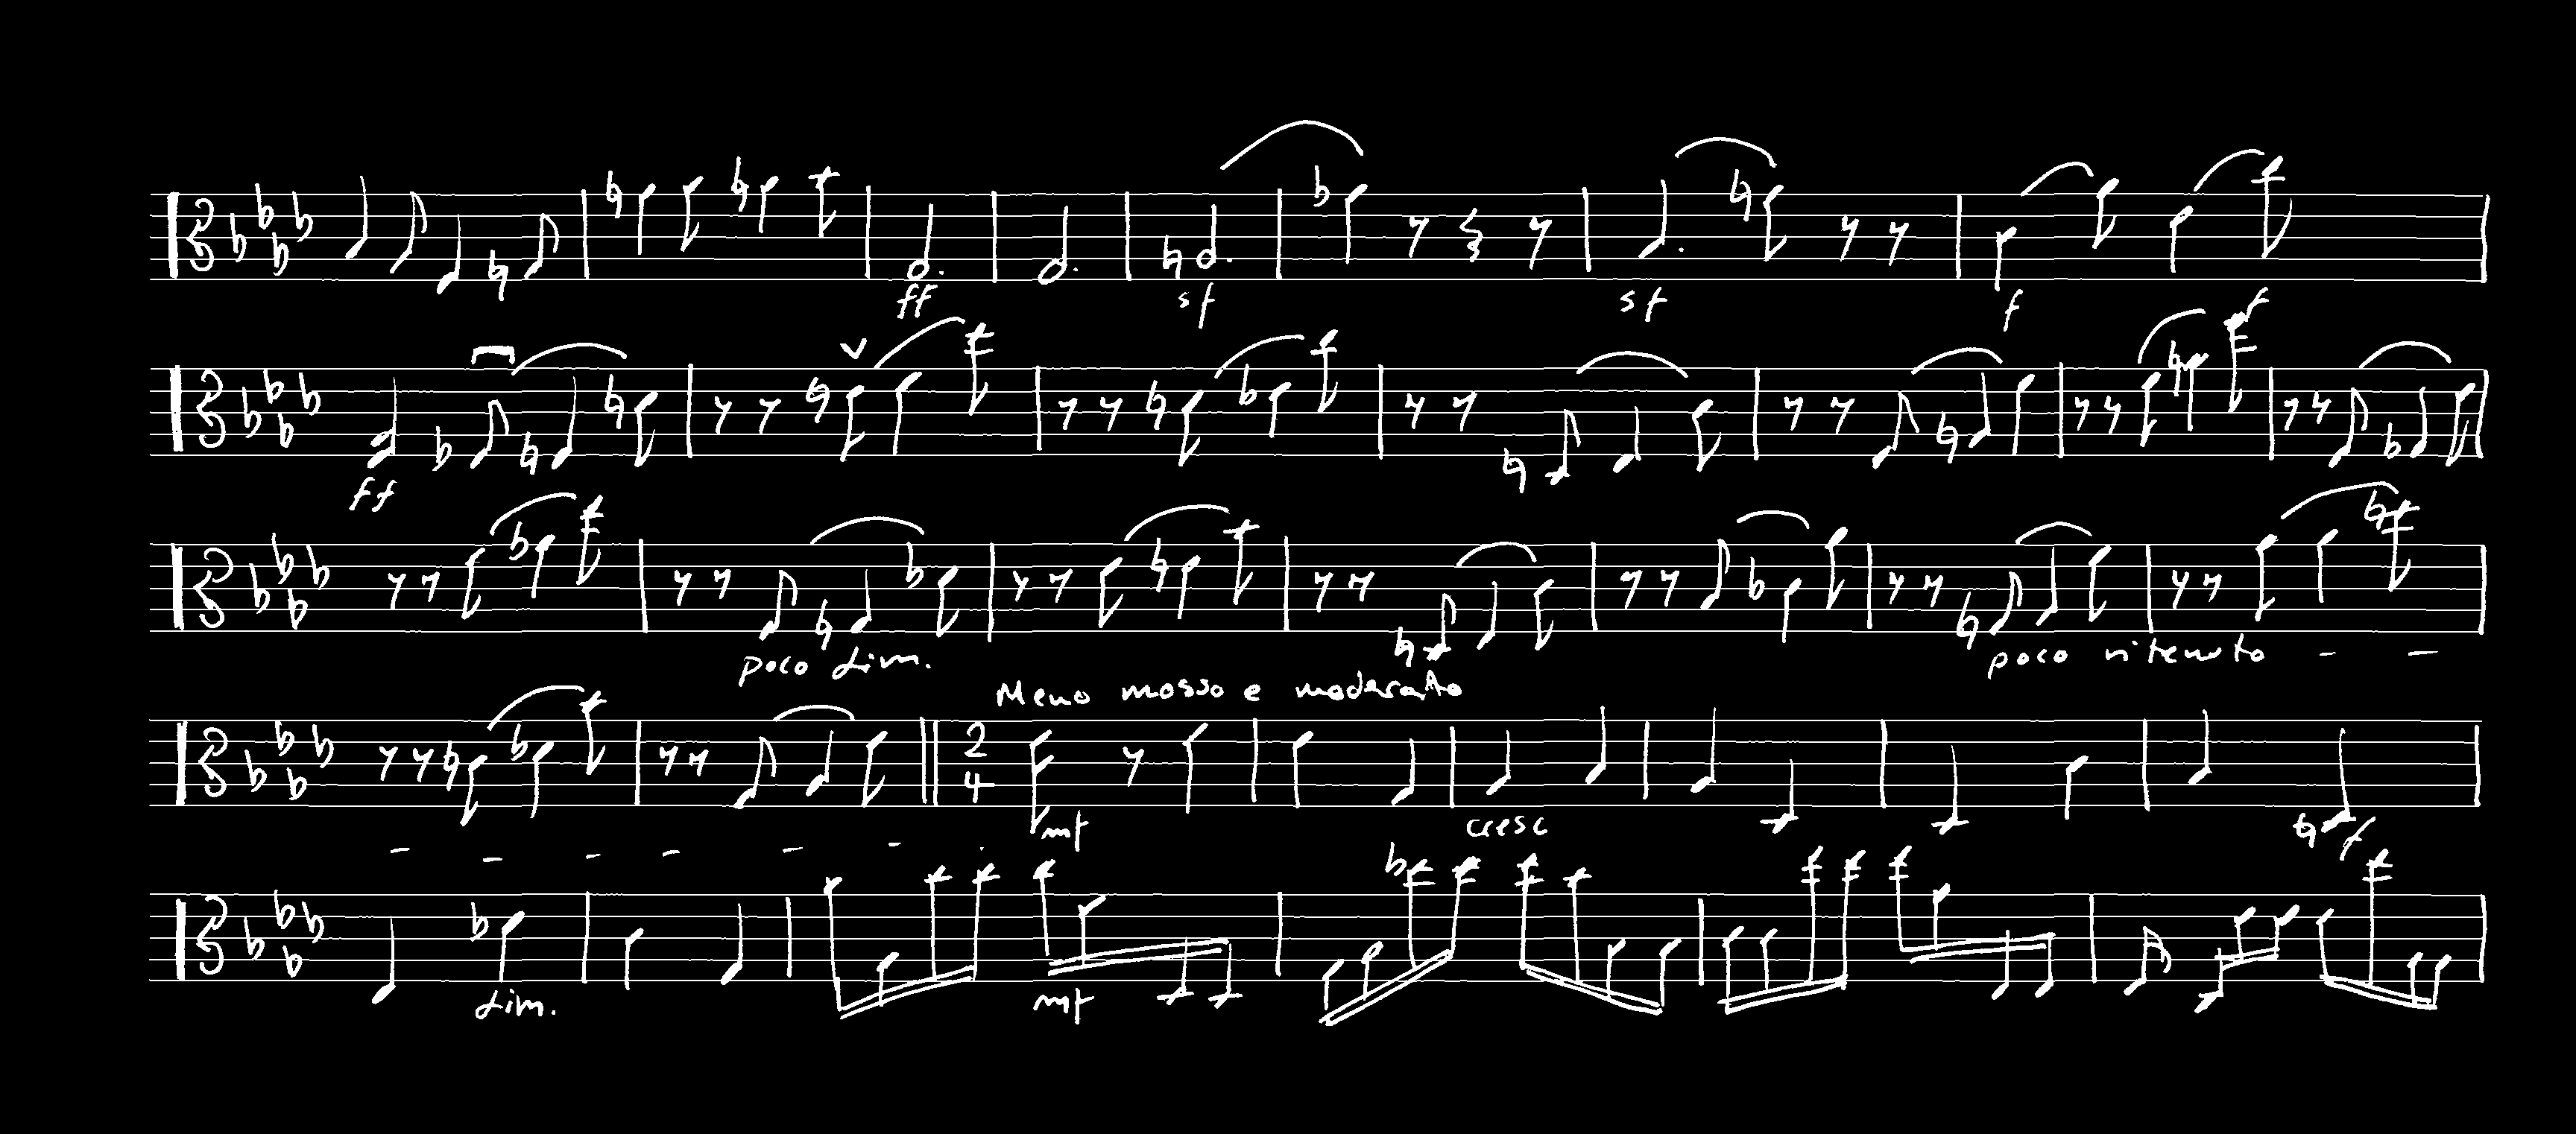 ff sf sf f
f
ff
poco dim. poco ritenuto - -
Meno mosso e moderato
2
4
mf cresc f
- - - - - -
dim. mf